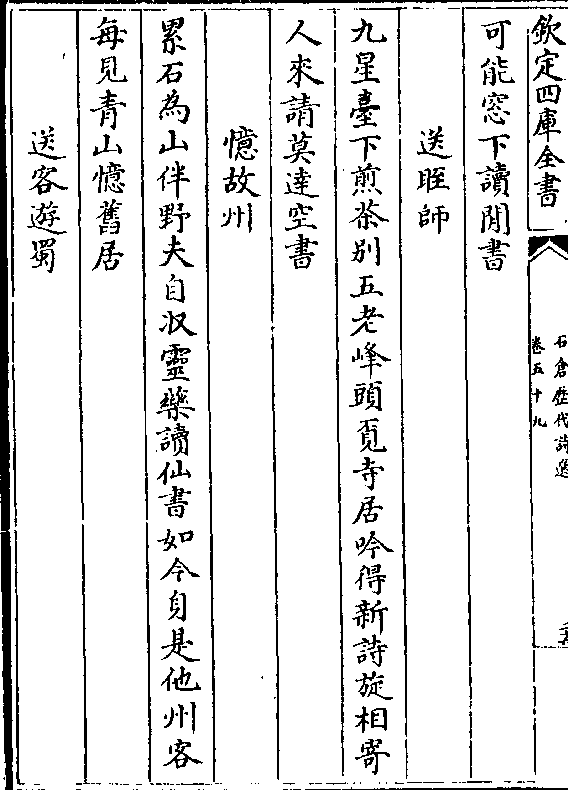 欽定四庫全書
石倉歴代詩選
卷五十九
可能窓下讀閒書
送眰師
九星臺下煎茶别五老峰頭覔寺居吟得新詩旋相寄
人來請莫達空書
憶故州
累石為山伴野夫自収靈藥讀仙書如今身是他州客
每見青山憶舊居
送客遊蜀